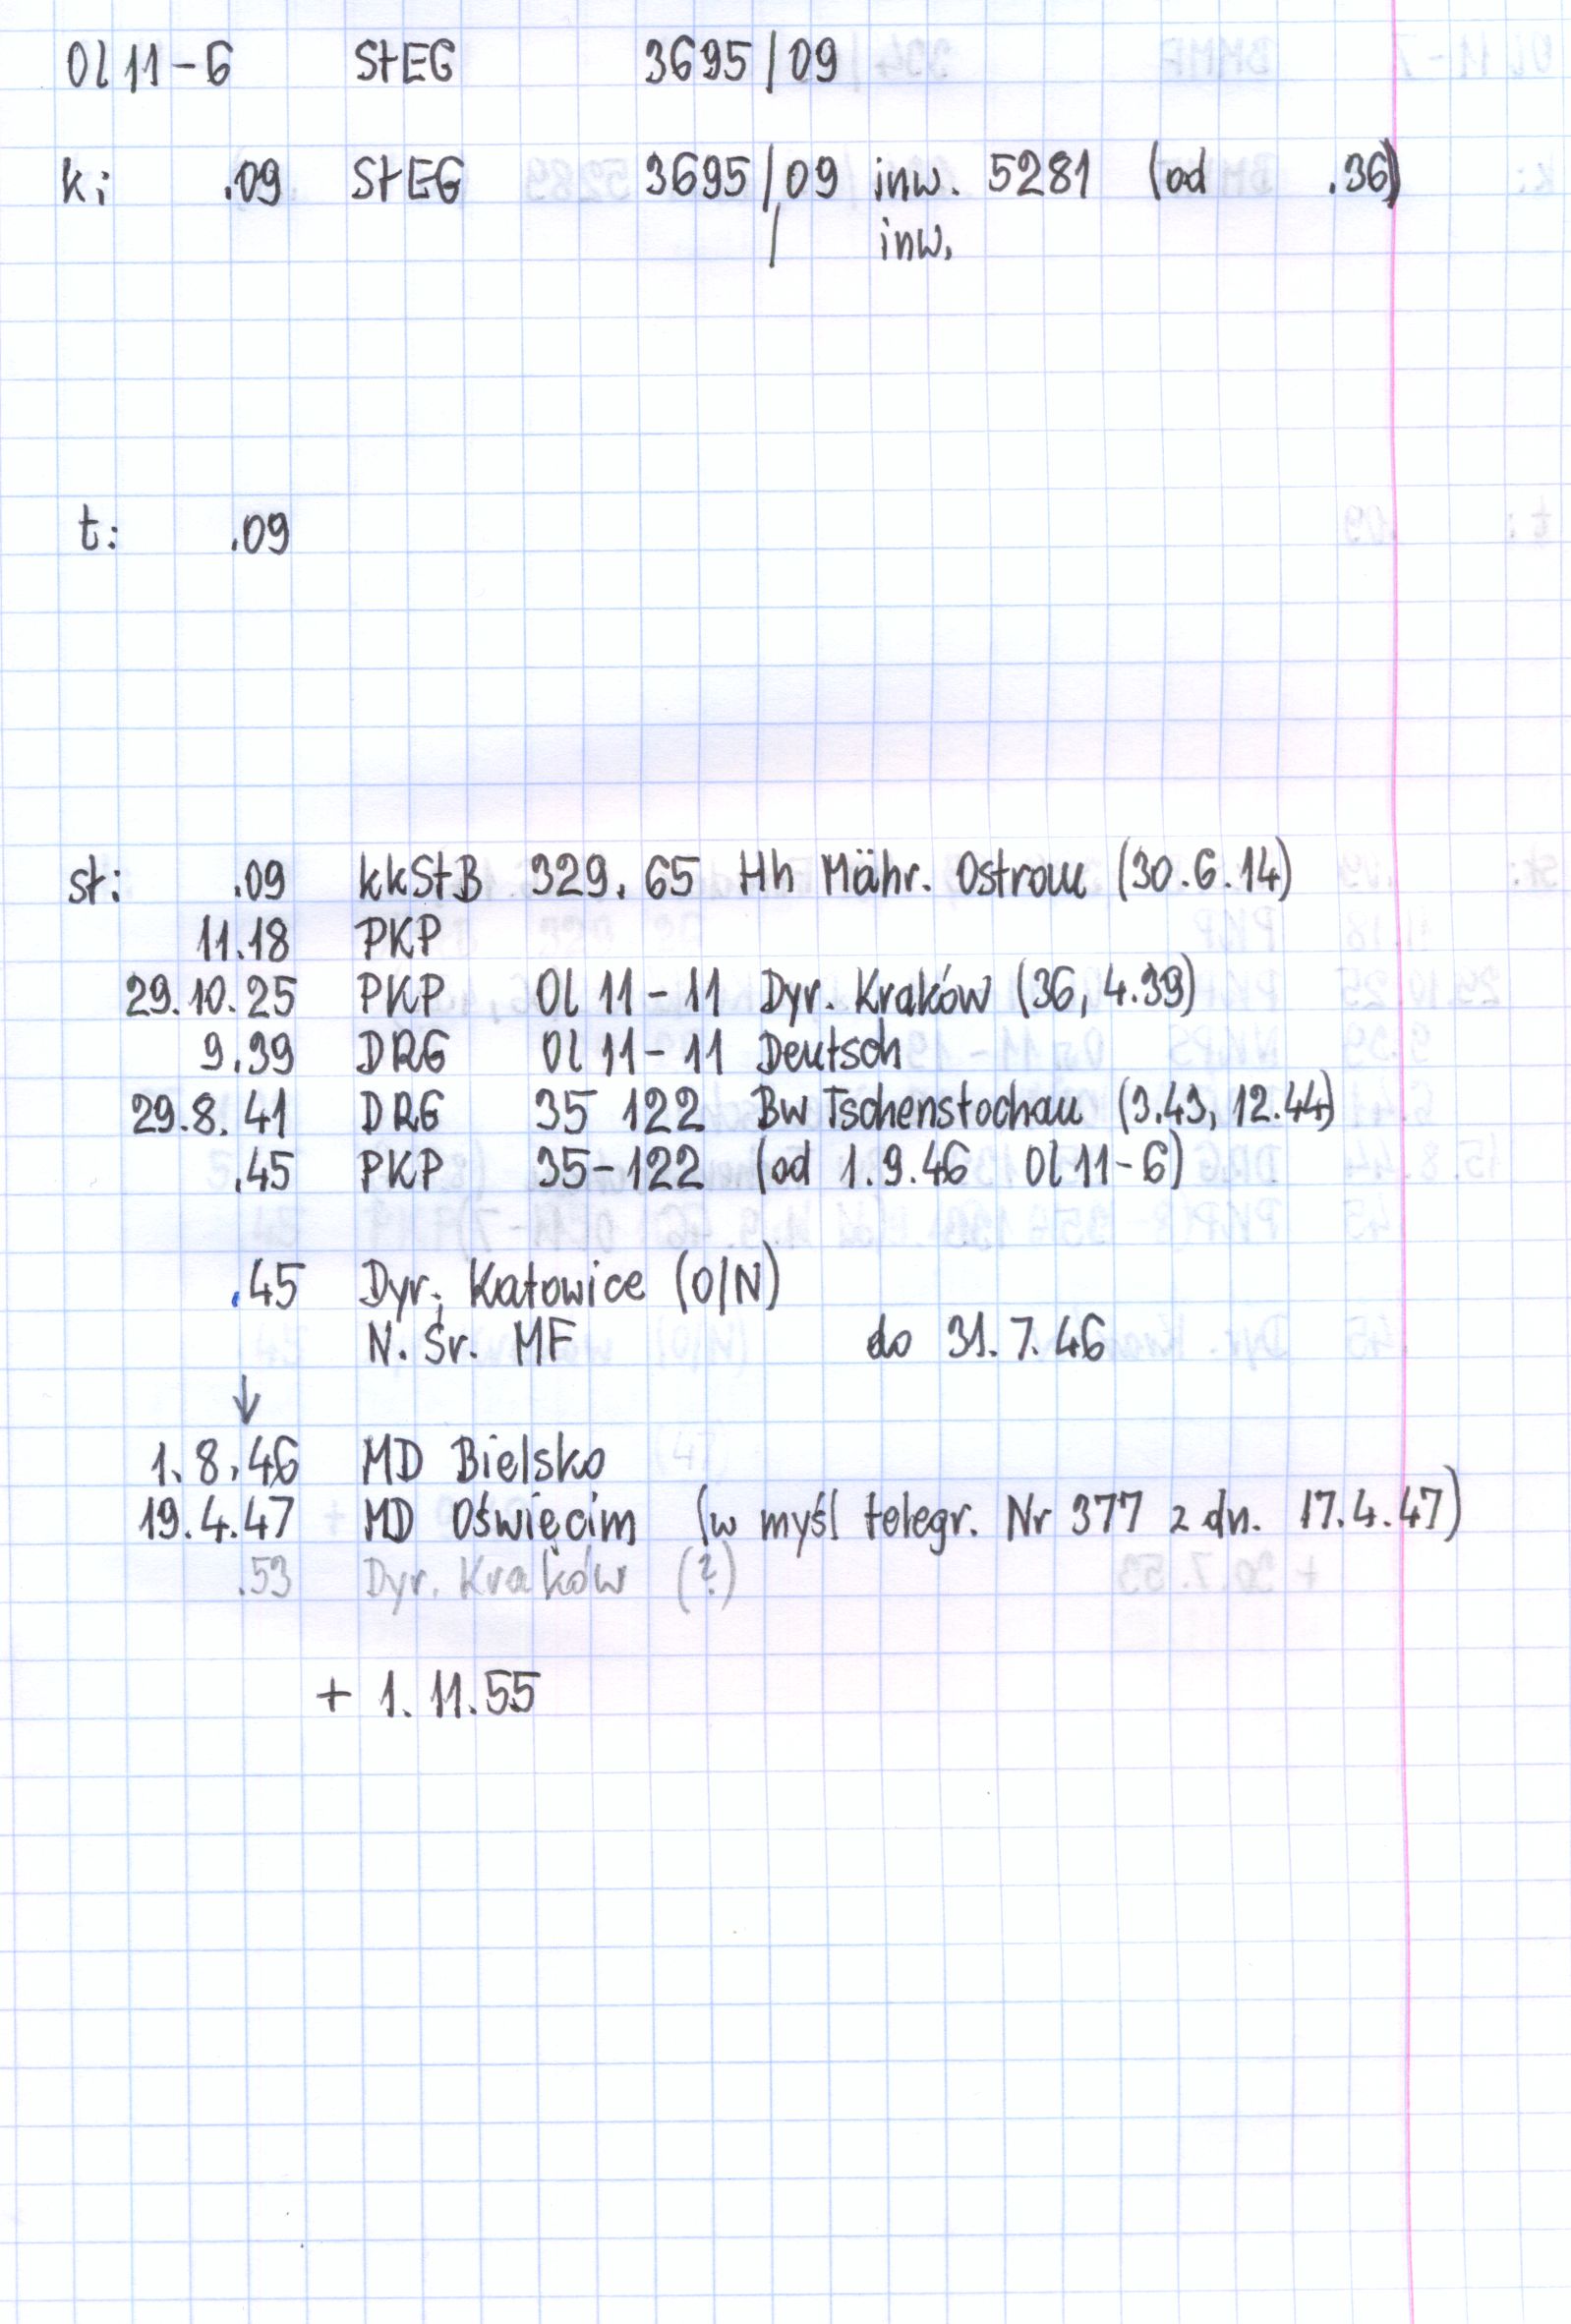 Ol 11-6 StEG 3695/09
k: .09 StEG 3695/09 inw. 5281 (od .36)
/ inw.
t: .09
st: .09 kkStB 329.65 Hh Mähr. Ostrau (30.6.14)
11.18 PKP
29.10.25 PKP Ol 11-11 Dyr. Kraków (36, 4.39)
9.39 DRG Ol 11-11 Deutsch
29.8.41 DRG 35 122 Bw Tschenstochau (3.43, 12.44)
.45 PKP 35-122 (od 1.9.46 Ol 11-6)
.45 Dyr. Katowice (O/N)
N. Śr. MF do 31.7.46
↓
1.8.46 MD Bielsko
19.4.47 MD Oświęcim (w myśl telegr. Nr 377 z dn. 17.4.47)
.53 Dyr. Kraków (?)
+ 1.11.55